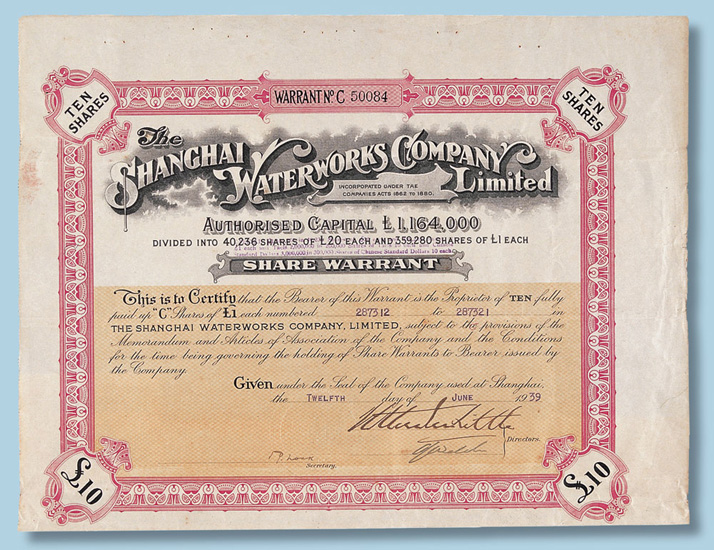 WARRANT No. C 50084
TEN SHARES
TEN SHARES
The
SHANGHAI WATERWORKS COMPANY Limited
INCORPORATED UNDER THE
COMPANIES ACTS 1862 TO 1880.
AUTHORISED CAPITAL £1,164,000
DIVIDED INTO 40,236 SHARES OF £20 EACH AND 359,280 SHARES OF £1 EACH
SHARE WARRANT
This is to Certify that the Bearer of this Warrant is the Proprietor of TEN fully
paid up "C" Shares of £1 each numbered 287312 to 287321 in
THE SHANGHAI WATERWORKS COMPANY, LIMITED, subject to the provisions of the
Memorandum and Articles of Association of the Company and the Conditions
for the time being governing the holding of Share Warrants to Bearer issued by
the Company.
Given under the Seal of the Company used at Shanghai,
the TWELFTH day of JUNE 1939
Directors.
Secretary.
£10
£10